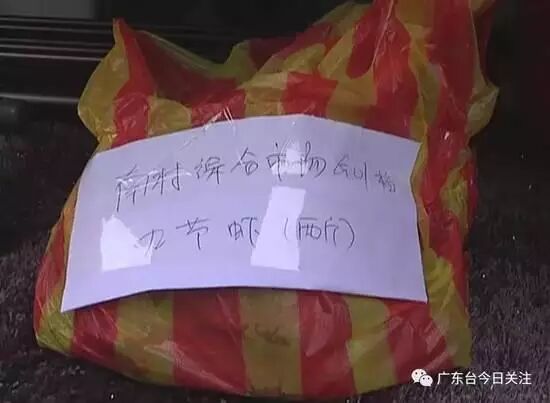 南村综合市场
九节虾(两斤)
广东台今日关注